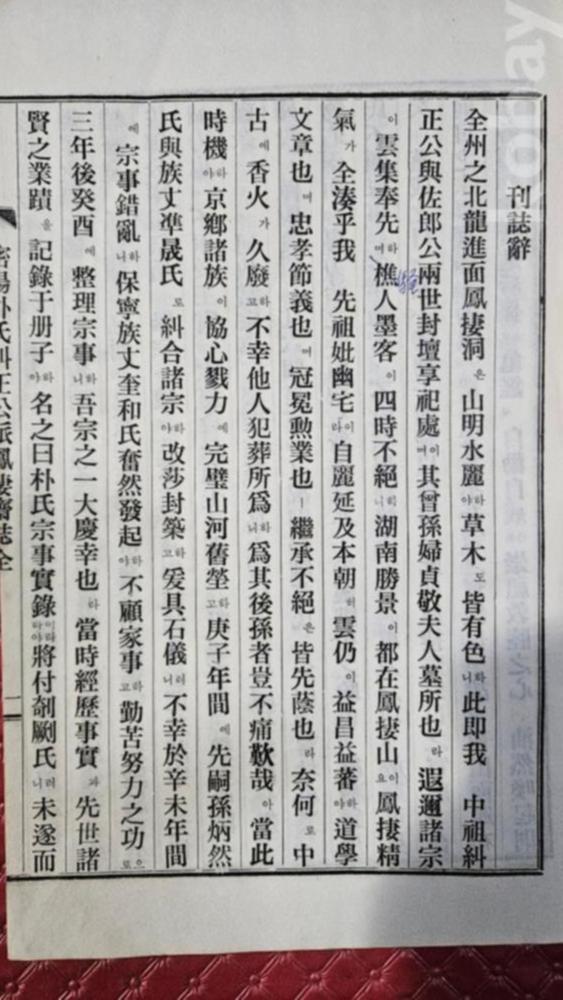 刊誌辭
全州之北龍進面鳳捿洞은山明水麗하야草木도皆有色하니此即我 中祖糾
正公與佐郎公兩世封壇享祀處이며其曾孫婦貞敬夫人墓所也라遐邇諸宗
이雲集奉先하며樵人墨客이四時不絕하니湖南勝景이都在鳳捿山이요鳳捿精
氣가全湊乎我 先祖妣幽宅이라自麗延及本朝히雲仍이益昌益蕃하야道學
文章也며忠孝節義也며冠冕勲業也ㅣ繼承不絕은皆先蔭也라奈何로中
古에香火가久廢하고不幸他人犯葬所爲하니爲其後孫者豈不痛歎哉아當此
時機하야京鄉諸族이協心戮力에完璧山河舊塋하고庚子年間에先嗣孫炳然
氏與族丈準晟氏로糾合諸宗하야改莎封築하고爰具石儀러니不幸於辛未年間
에宗事錯亂하니保寧族丈奎和氏奮然發起하야不顧家事하고勤苦努力之功으로
三年後癸酉에整理宗事하니吾宗之一大慶幸也라當時經歷事實과先世諸
賢之業蹟을記錄于册子하야名之曰朴氏宗事實錄이라하야將付剞劂氏러니未遂而
密陽朴氏糾正公派鳳棲齋誌全
kobay